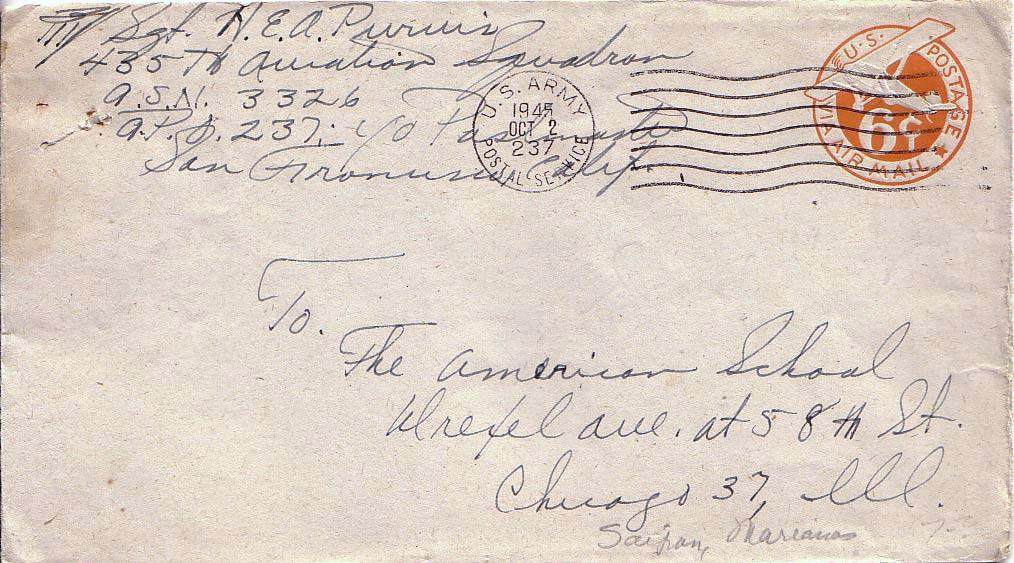 T/Sgt. H.E.A. Purvis
435 Th Aviation Squadron
A.S.N. 3326
A.P.O. 237, c/o Postmaster
San Francisco Calif.
U.S. ARMY
1945
OCT 2
237
POSTAL SERVICE
U.S. POSTAGE
6¢
VIA AIR MAIL
To.
The American School
Drexel ave. at 58 th St.
Chicago 37, Ill.
Saipan, Marianas